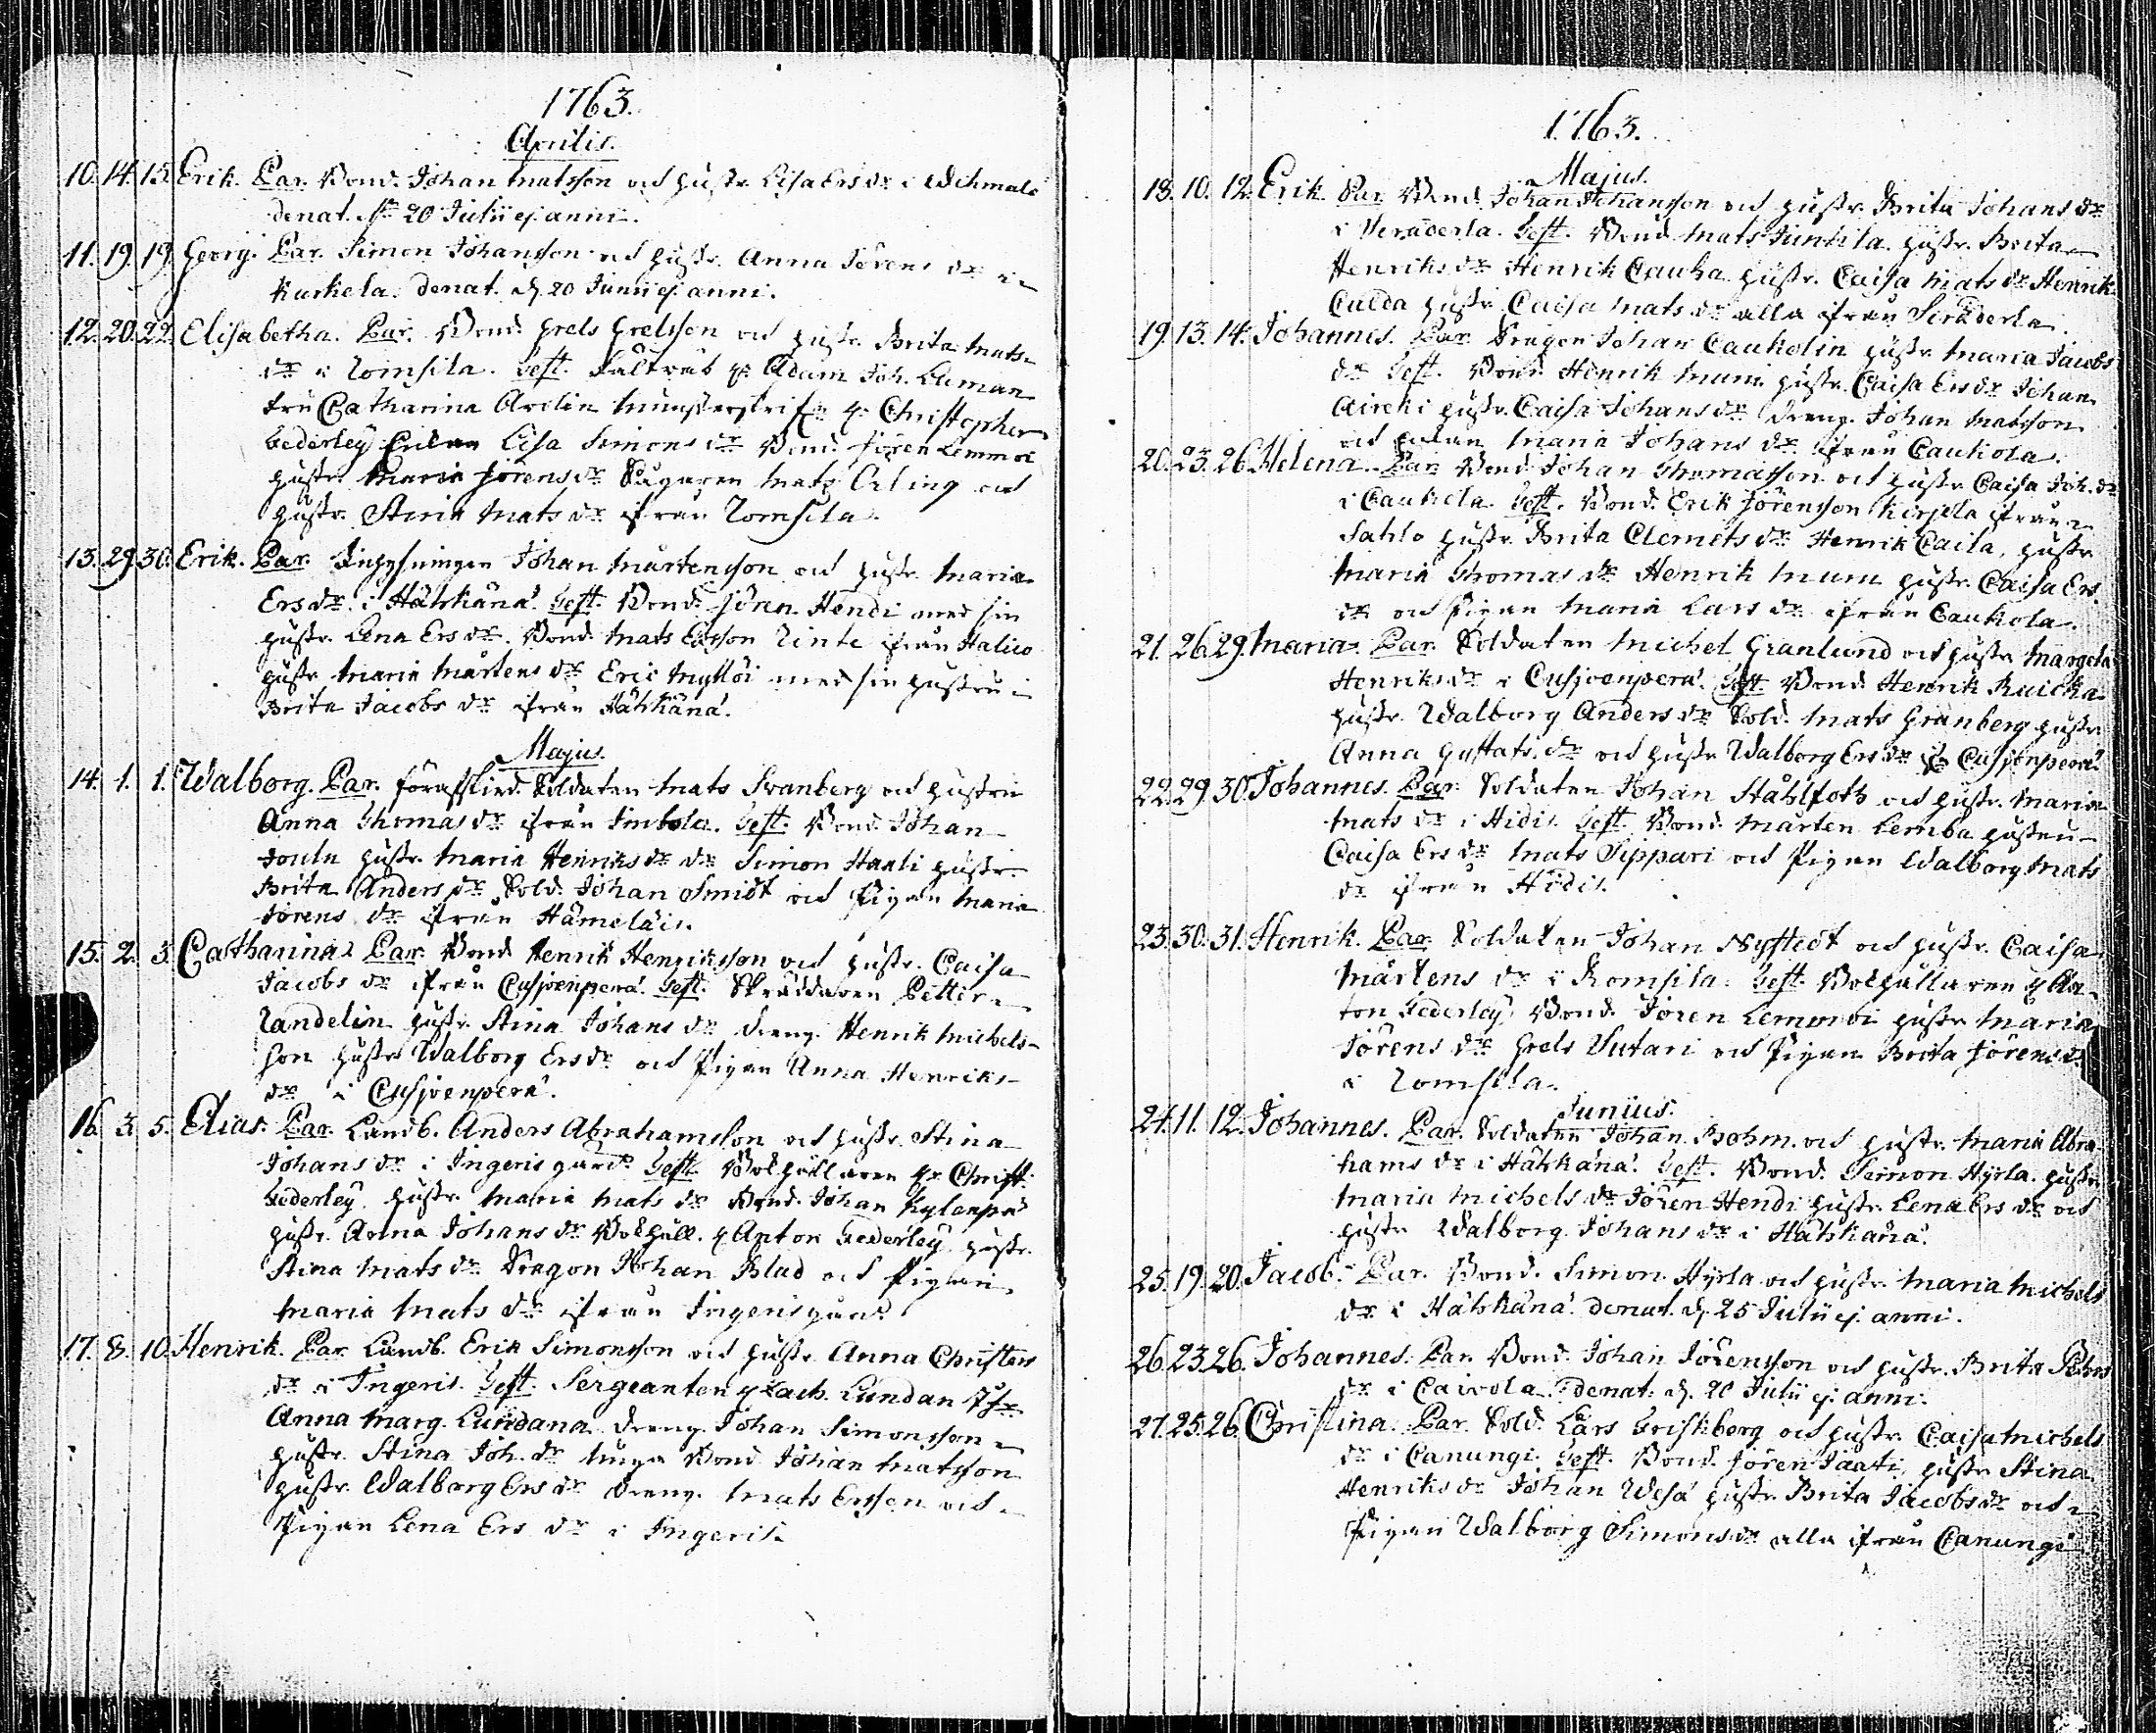 1763.
Aprilis.
10. 14. 15. Erik. Par. Bond. Johan Matsson och hustr. Lisa Ers dr i Wihmalo
denat. d. 20 Julii ej. anni.
11. 19. 19. Georg. Par. Simon Johansson och hustr. Anna Jörens dr i
Kurkela. denat. d. 20 Junii ej. anni.
12. 20. 22. Elisabetha. Par. Bond. Grels Grelsson och hustr. Brita Mats
dr i Romsila. Test. Fältväb. H. Adam Joh. Laman
Fru Catharina Arelin Munsterskrif. H. Christopher
Gederley Enkan Lisa Simons dr Bond. Jören Lemmoi
hustr. Maria Jörens dr Sågaren Mats Erling och
hustr. Stina Mats dr ifrån Romsila.
13. 29. 30. Erik. Par. Inhysningen Johan Mårtensson och hustr. Maria
Ers dr i Hätskänä. Test. Bond. Jören Hendi med sin
hustr. Lena Ers dr. Bond. Mats Ersson Rinte ifrån Halico
hustr. Maria Mårtens dr Eric Myllöi med sin hustru
Brita Jacobs dr ifrån Hätskänä.
Majus.
14. 1. 1. Walborg. Par. förafskied. Soldaten Mats Svanberg och hustru
Anna Thomas dr ifrån Imbola. Test. Bond. Johan
Joulu hustr. Maria Henriks dr dr Simon Haali hustr.
Brita Anders dr Sold. Johan Smidt och Pigan Maria
Jörens dr ifrån Hämeläis.
15. 2. 3. Catharina Par. Bond. Henrik Henriksson och hustr. Caisa
Jacobs dr ifrån Cusjoenperä. Test. Skräddaren Petter
Randelin hustr. Stina Johans dr dreng. Henrik Michels-
son hustr. Walborg Ers dr och Pigan Anna Henriks
dr i Cusjoenperä.
16. 3. 5. Elias. Par. Landb. Anders Abrahamsson och hustr. Stina
Johans dr i Ingerisgård. Test. Bokhållaren H. Christ.
Gederley hustr. Maria Mats dr Bond. Johan Kylenpä
hustr. Anna Johans dr Bokhåll. H. Anton Gederley hustr.
Stina Mats dr Dragon Johan Blad och Pigan
Maria Mats dr ifrån Ingerisgård.
17. 8. 10. Henrik. Par. Landb. Erik Simonsson och hustr. Anna Christers
dr i Ingeris. Test. Sergeanten H. Zach. Lundan
Anna Marg. Lundana dreng. Johan Simonsson
hustr. Stina Joh. dr unga Bond. Johan Matsson
hustr. Walborg Ers dr dreng. Mats Ersson och
Pigan Lena Ers dr i Ingeris.
1763.
Majus.
18. 10. 12. Erik. Par. Bond. Johan Johansson och hustr. Brita Johans dr
i Veräderla. Test. Bond. Mats Juntila hustr. Brita
Henriks dr Henrik Cauha hustr. Caisa Mats dr Henrik
Culda hustr. Caisa Mats dr alla ifrån Seräderla.
19. 13. 14. Johannes. Par. Dragon Johan Caukolin hustr. Maria Jacobs
dr Test. Bond. Henrik Mumi hustr. Caisa Ers dr Johan
Aircki hustr. Caisa Johans dr dreng. Johan Matsson
och enkan Maria Johans dr ifrån Caukola.
20. 23. 26. Helena. Par. Bond. Johan Thomasson och hustr. Caisa Joh. dr
i Caukola. Test. Bond. Erik Jörensson Kirjela ifrån
Sahlo hustr. Brita Clemets dr Henrik Caila, hustr.
Maria Thomas dr Henrik Mum hustr. Caisa Ers
dr och Pigan Maria Lars dr ifrån Caukola.
21. 26. 29. Maria. Par. Soldaten Michel Granlund och hustr. Margeta
Henriks dr i Cusjoenperä. Test. Bond. Henrik Ruicka
hustr. Walborg Anders dr Sold. Mats Granberg hustr.
Anna Gustafs dr och hustr. Walborg Ers dr ifr. Cusjonperä.
22. 29. 30. Johannes. Par. Soldaten Johan Ståhlfoth och hustr. Maria
Mats dr i Hidis. Test. Bond. Mårten Lemba hustru
Caisa Ers dr Mats Sippari och Pigan Walborg Mats
dr ifrån Hidis.
23. 30. 31. Henrik. Par. Soldaten Johan Nystedt och hustr. Caisa
Mårtens dr i Romsila. Test. Bokhållaren H. An-
ton Gederley Bond. Jören Lemmoi hustr. Maria
Jörens dr Grels Sutari och Pigan Brita Jörens dr
i Romsila.
Junius.
24. 11. 12. Johannes. Par. Soldaten Johan Bohm. och hustr. Maria Abra-
hams dr i Hätskänä. Test. Bond. Simon Hyrla hustr.
Maria Michels dr Jören Hendi hustr. Lena Ers dr och
hustr. Walborg Johans dr i Hätskänä.
25. 19. 20. Jacob. Par. Bond. Simon Hyrla och hustr. Maria Michels
dr i Hätskänä. denat. d. 25 Julii ej. anni.
26. 23. 26. Johannes. Par. Bond. Johan Jörensson och hustr. Brita
dr i Caivola. denat. d. 20 Julii ej. anni.
27. 25. 26. Christina. Par. Sold. Lars Friskberg och hustr. Caisa Michels
dr i Canungi. Test. Bond. Jören Jaati, hustr. Stina
Henriks dr Johan Wesä hustr. Brita Jacobs dr och
Pigan Walborg Simons dr alla ifrån Canungi.